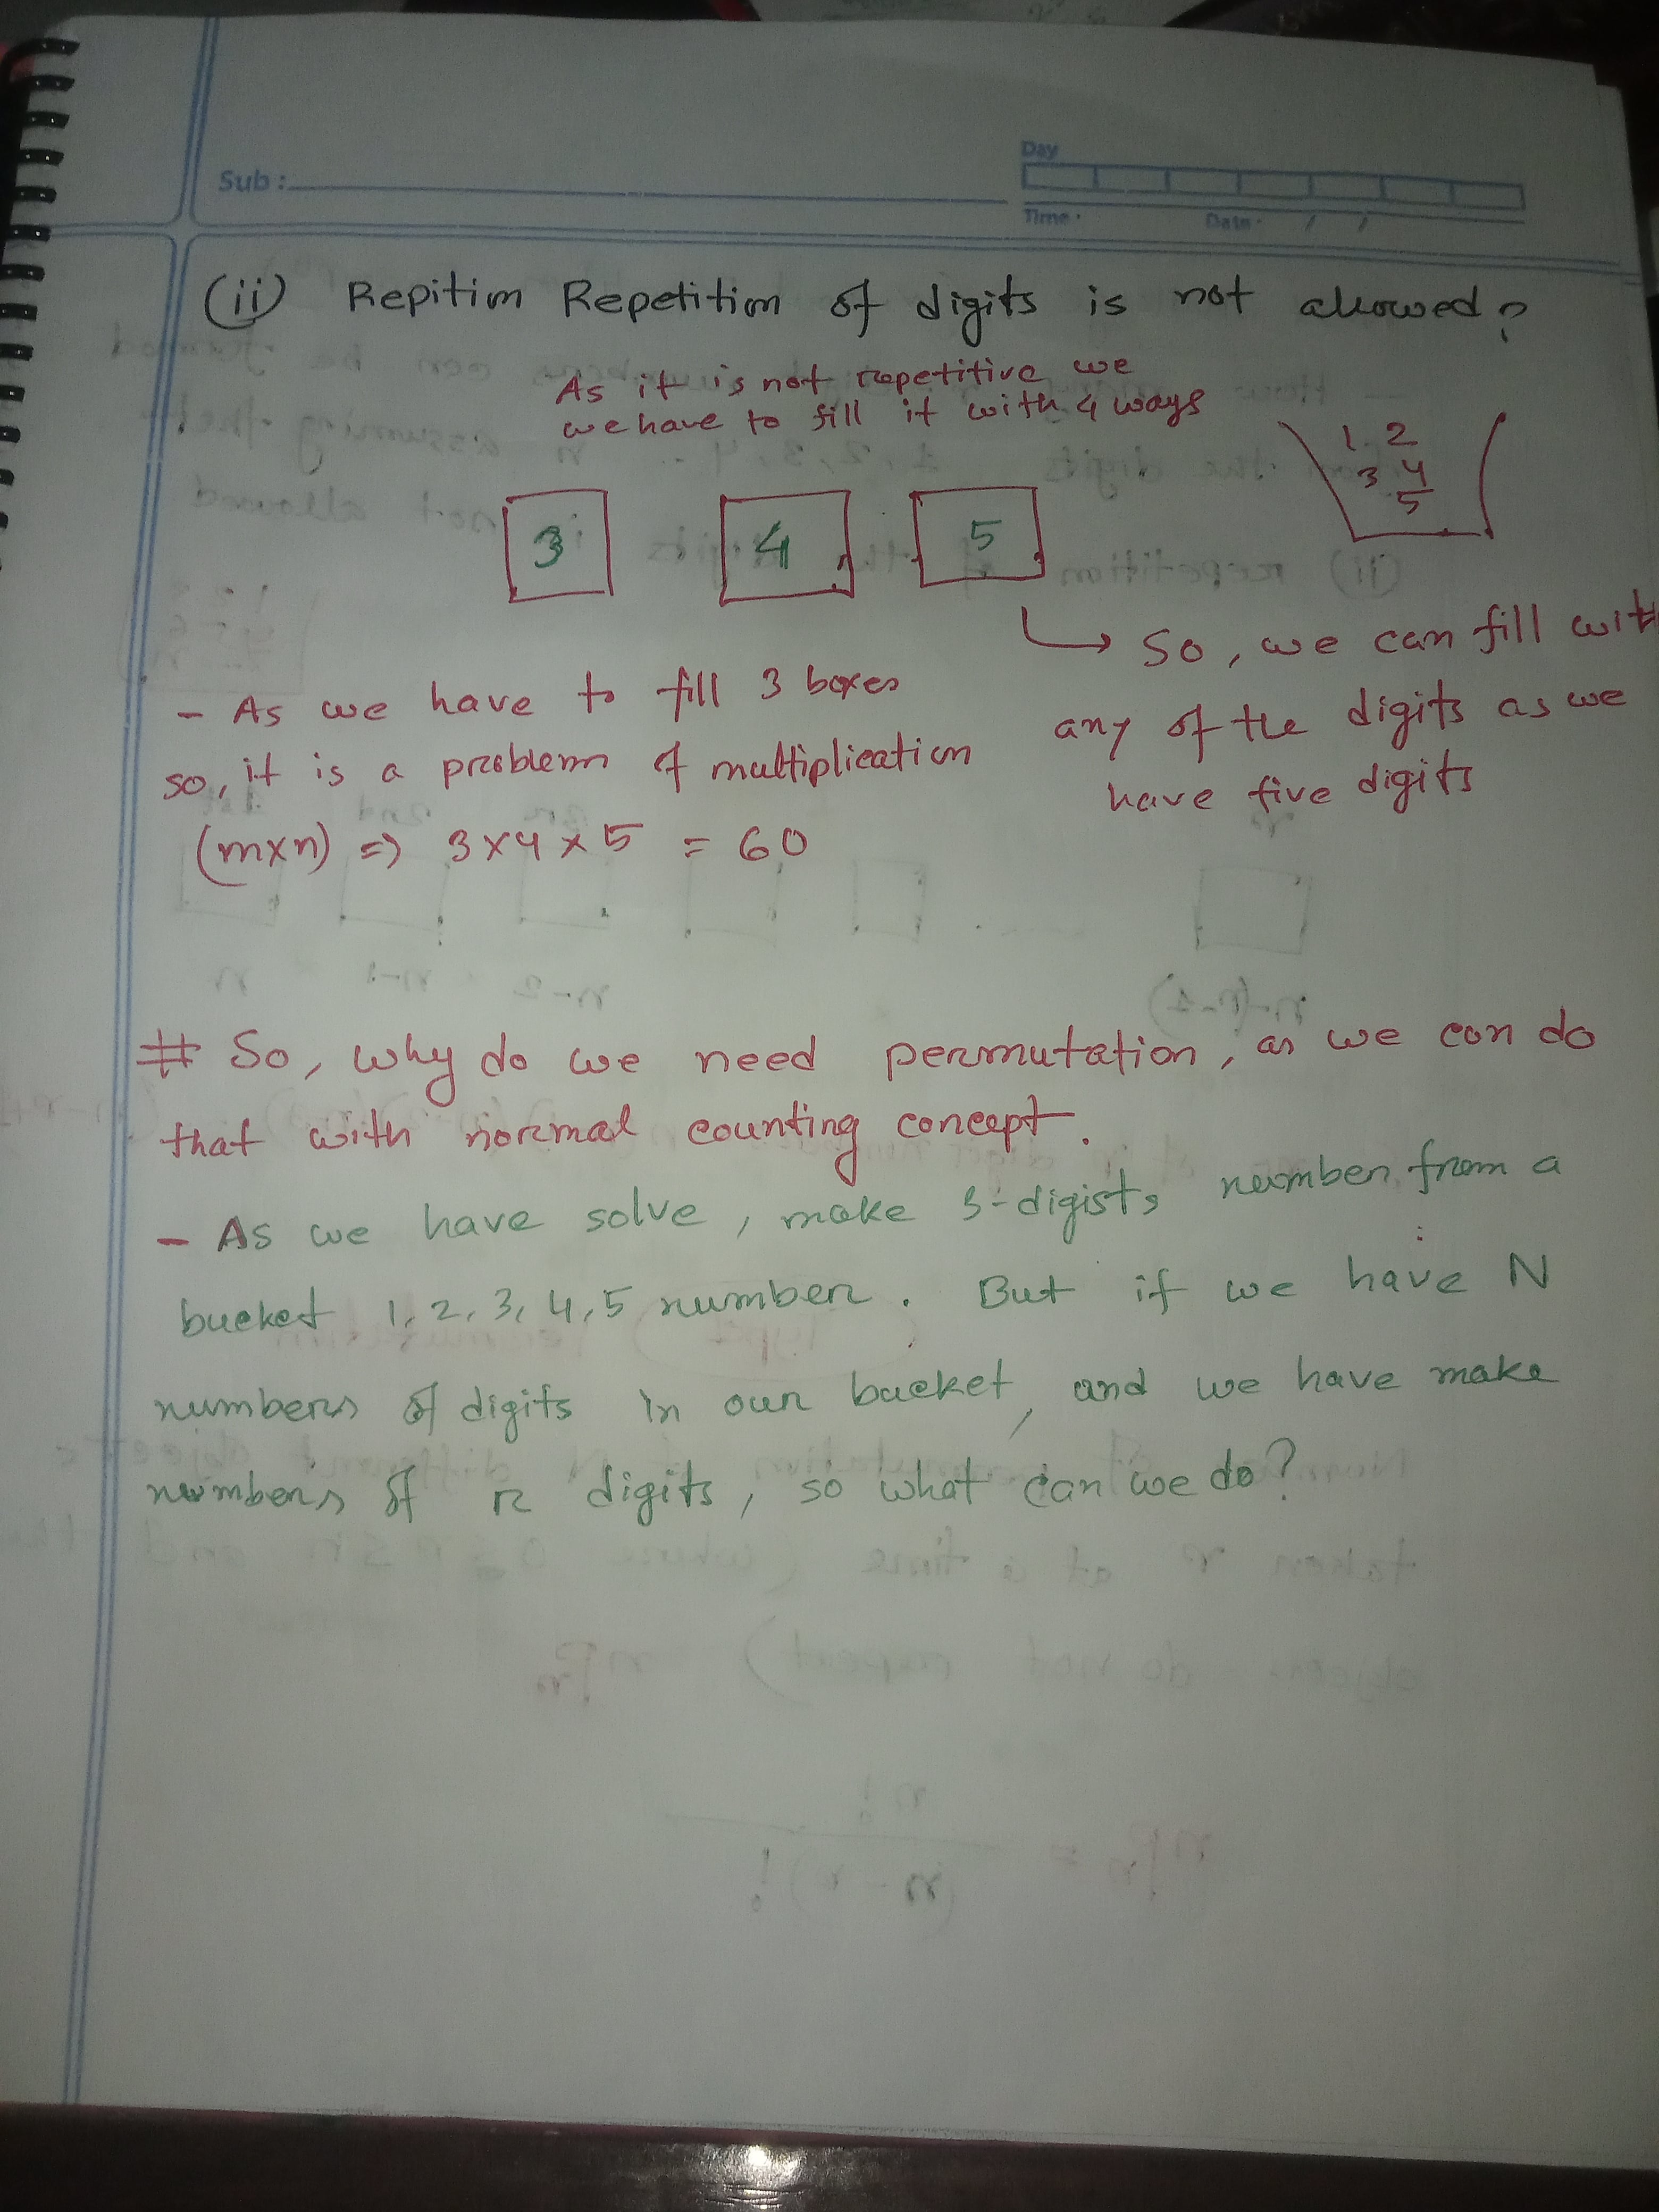 Day
Sub :
Time · Date · / /
(ii) Repition Repetition of digits is not allowed?
As it is not repetitive we
we have to fill it with 4 ways
1 2
3 4
5
3 4 5
→ So, we can fill with
any of the digits as we
have five digits
- As we have to fill 3 boxes
so, it is a problem of multiplication
(m×n) => 3×4×5 = 60
# So, why do we need permutation, as we can do
that with normal counting concept.
- As we have solve, make 3-digists number from a
bucket 1, 2, 3, 4, 5 number. But if we have N
numbers of digits in our bucket, and we have make
numbers of r digits, so what can we do?